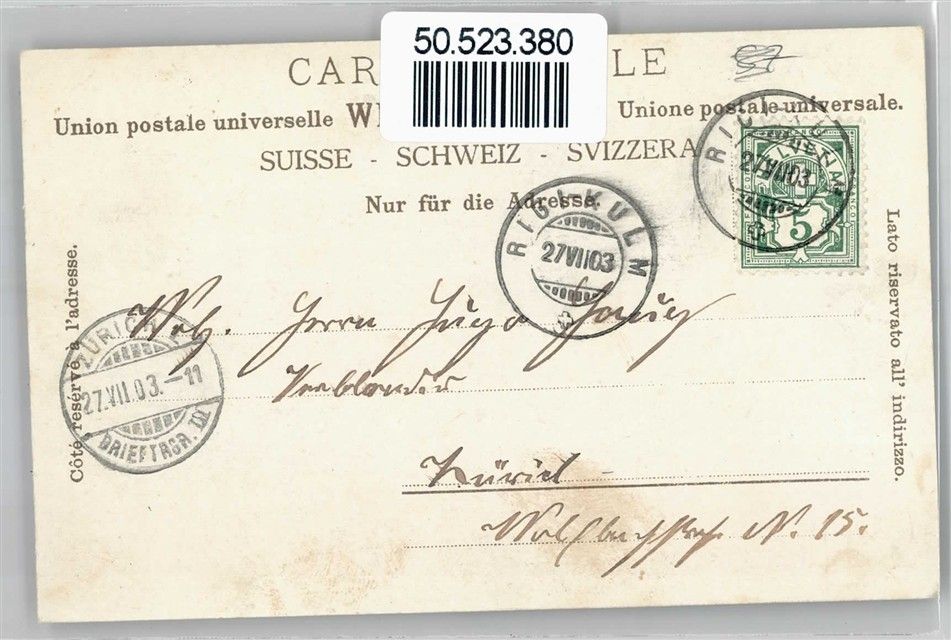 50.523.380
CAR LE
Union postale universelle W Unione postale universale.
SUISSE - SCHWEIZ - SVIZZERA
Nur für die Adresse.
RIGI-KULM
27 VII 03
RIGI-KULM
27 VII 03
5
Côté réservé à l'adresse.
Lato riservato all' indirizzo.
ZÜRICH
27.VII.03.-11
BRIEFTRGR. III
Herrn Hugo
Zürich
Wolfbachstr. N. 15.